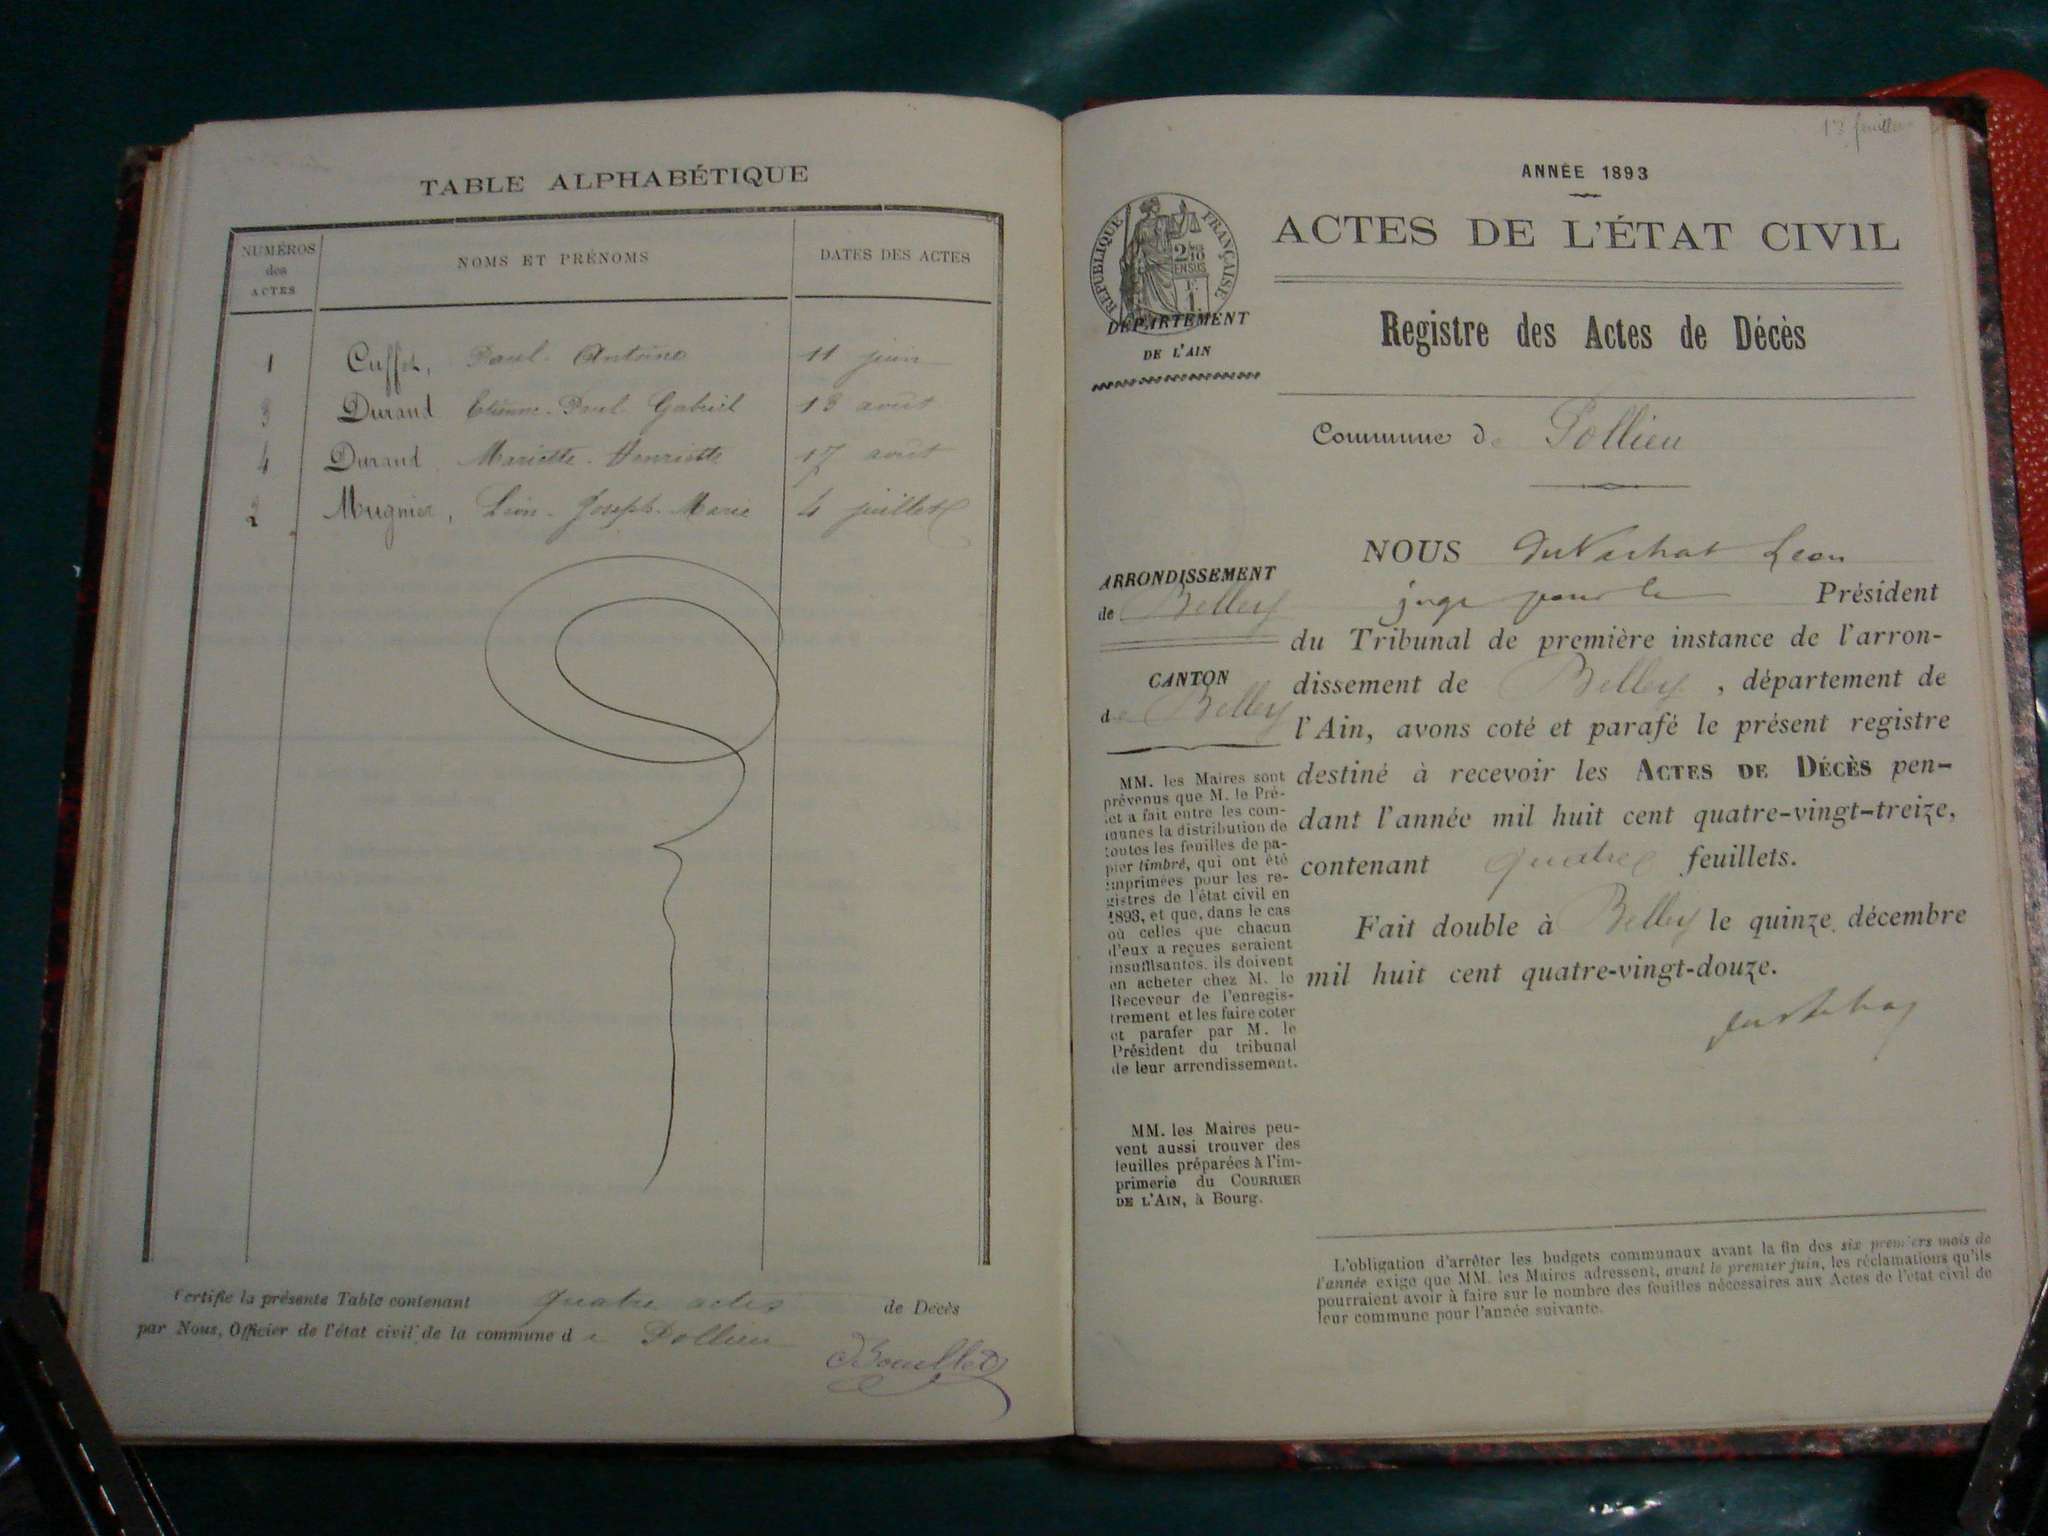 TABLE ALPHABÉTIQUE
NUMÉROS
des
ACTES
NOMS ET PRÉNOMS
DATES DES ACTES
1 Paul Antoine 11 juin
3 Durand Etienne Paul Gabriel 13 août
4 Durand Mariette Henriette 17 août
2 Mugnier, Léon Joseph Marie 4 juillet
Certifie la présente Table contenant quatre actes de Décès
par Nous, Officier de l'état civil de la commune de Pollieu
13 feuillets
ANNÉE 1893
RÉPUBLIQUE FRANÇAISE
ACTES DE L'ÉTAT CIVIL
DÉPARTEMENT
DE L'AIN
Registre des Actes de Décès
Commune de Pollieu
ARRONDISSEMENT
de Belley
CANTON
de Belley
MM. les Maires sont
prévenus que M. le Pré-
fet a fait entre les com-
munes la distribution de
toutes les feuilles de pa-
pier timbré, qui ont été
imprimées pour les re-
gistres de l'état civil en
1893, et que, dans le cas
où celles que chacun
d'eux a reçues seraient
insuffisantes, ils doivent
en acheter chez M. le
Receveur de l'enregis-
trement et les faire coter
et parafer par M. le
Président du tribunal
de leur arrondissement.
MM. les Maires peu-
vent aussi trouver des
feuilles préparées à l'im-
primerie du COURRIER
DE L'AIN, à Bourg.
NOUS Léon
juge pour le Président
du Tribunal de première instance de l'arron-
dissement de Belley, département de
l'Ain, avons coté et parafé le présent registre
destiné à recevoir les ACTES DE DÉCÈS pen-
dant l'année mil huit cent quatre-vingt-treize,
contenant quatre feuillets.
Fait double à Belley le quinze décembre
mil huit cent quatre-vingt-douze.
L'obligation d'arrêter les budgets communaux avant la fin des six premiers mois de
l'année exige que MM. les Maires adressent, avant le premier juin, les réclamations qu'ils
pourraient avoir à faire sur le nombre des feuilles nécessaires aux Actes de l'état civil de
leur commune pour l'année suivante.